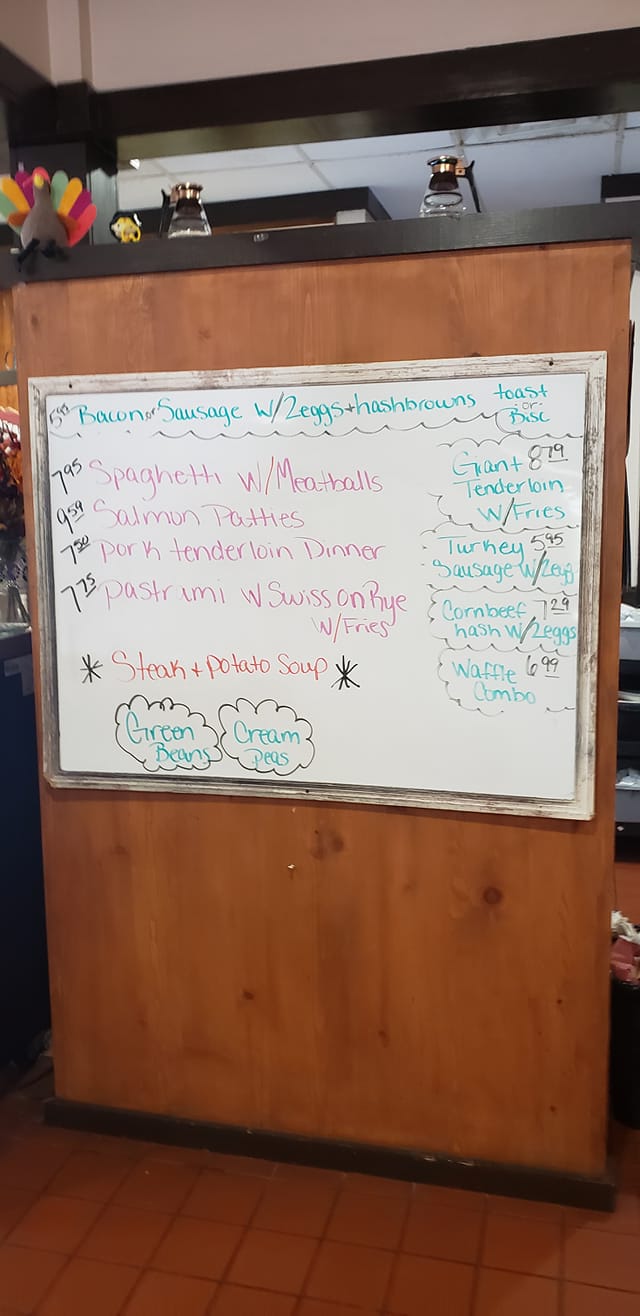 Bacon or Sausage W/2eggs + hashbrowns toast
or
Bisc
7.95 Spaghetti W/Meatballs
9.59 Salmon Patties
7.50 pork tenderloin Dinner
7.75 pastrami W Swiss on Rye
W/Fries
* Steak + potato Soup *
Green
Beans
Cream
peas
Giant 8.79
Tenderloin
W/Fries
Turkey 5.95
Sausage w/2egg
Cornbeef 7.29
hash W/2eggs
Waffle 6.99
Combo